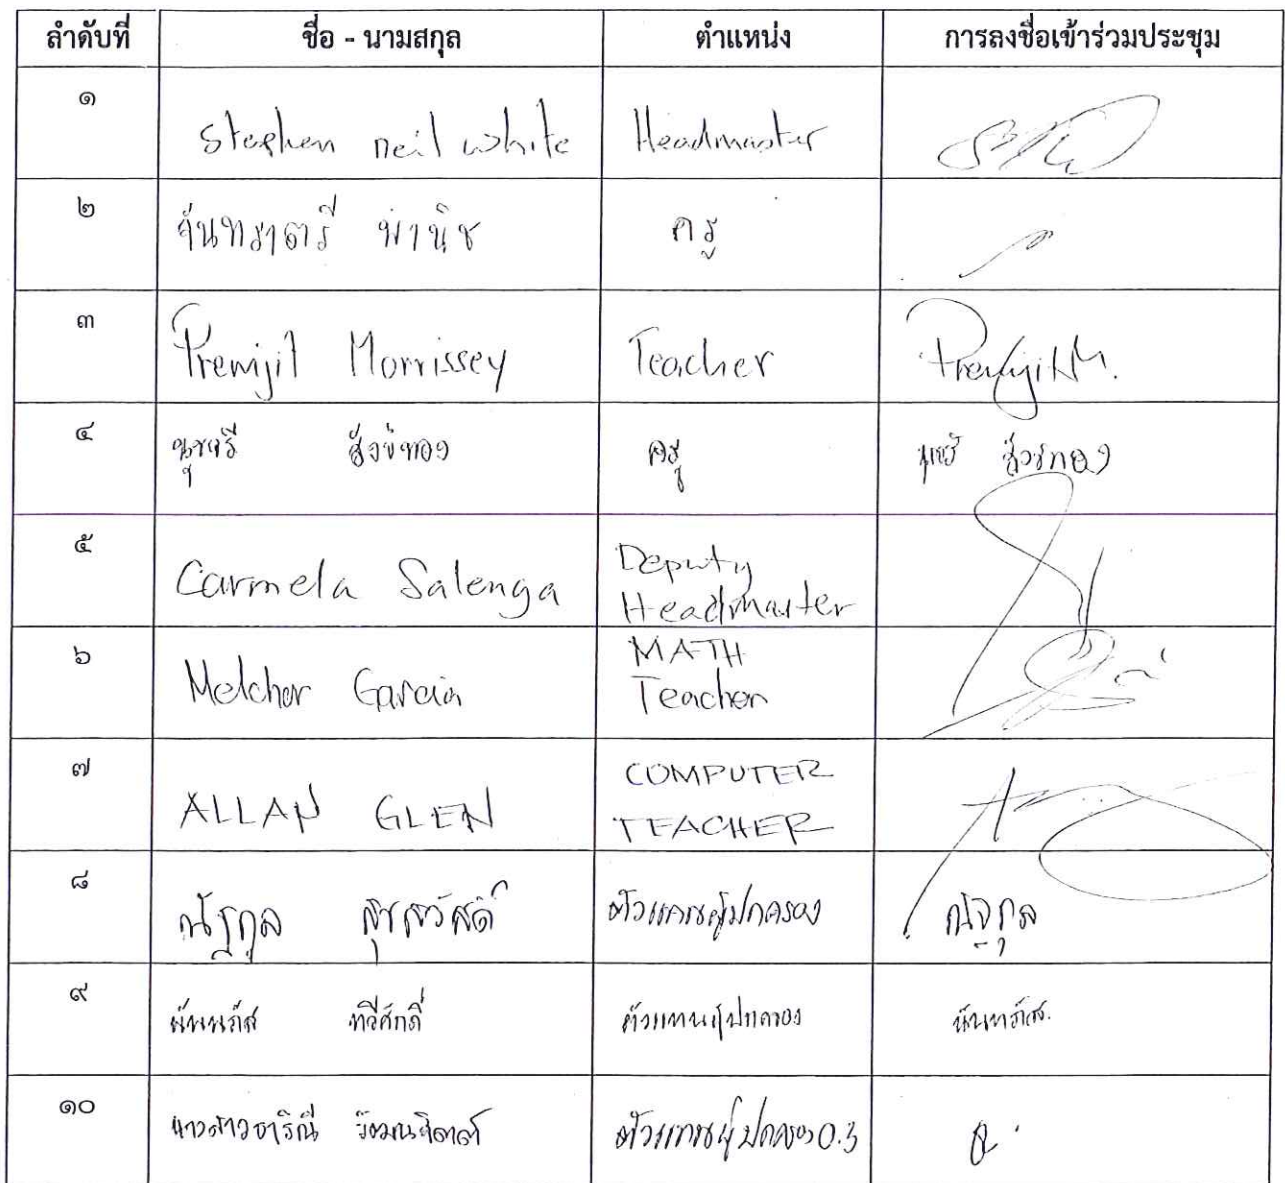 ลำดับที่ ชื่อ - นามสกุล ตำแหน่ง การลงชื่อเข้าร่วมประชุม
๑ Stephen neil white Headmaster
๒ จันทราตรี พานิช ครู
๓ Premjit Morrissey Teacher Premjit M.
๔ นุชศรี สังข์ทอง ครู สังข์ทอง
๕ Carmela Salenga Deputy
Headmaster
๖ Melchor Garcia MATH
Teacher
๗ ALLAN GLEN COMPUTER
TEACHER
๘ ณัฐกูล สุขสวัสดิ์ ตัวแทนผู้ปกครอง ณัฐกูล
๙ ทวีศักดิ์ ตัวแทนผู้ปกครอง
๑๐ นางสาวธาริณี ตัวแทนผู้ปกครอง อ.3